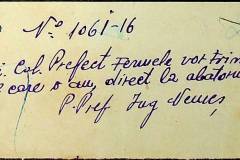 No 1061-16
Col. Prefect Fermele vor trim
care o am direct la abatoru
P. Pref Ing Nemeș